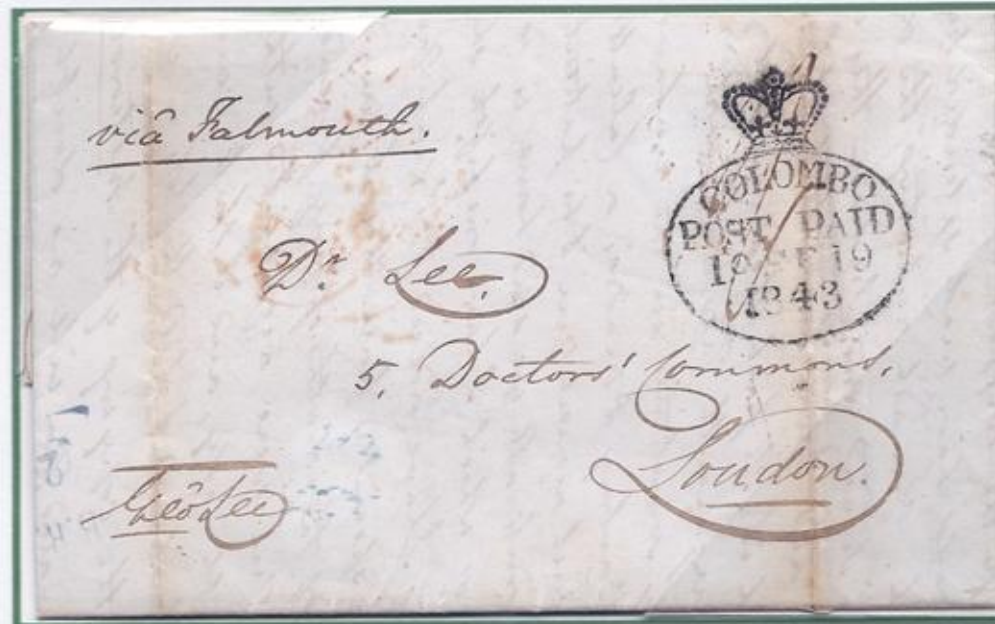 viâ Falmouth.
COLOMBO
POST PAID
19 SE 19
1843
Dr. Lee,
5, Doctors' Commons,
London.
Geô Lee